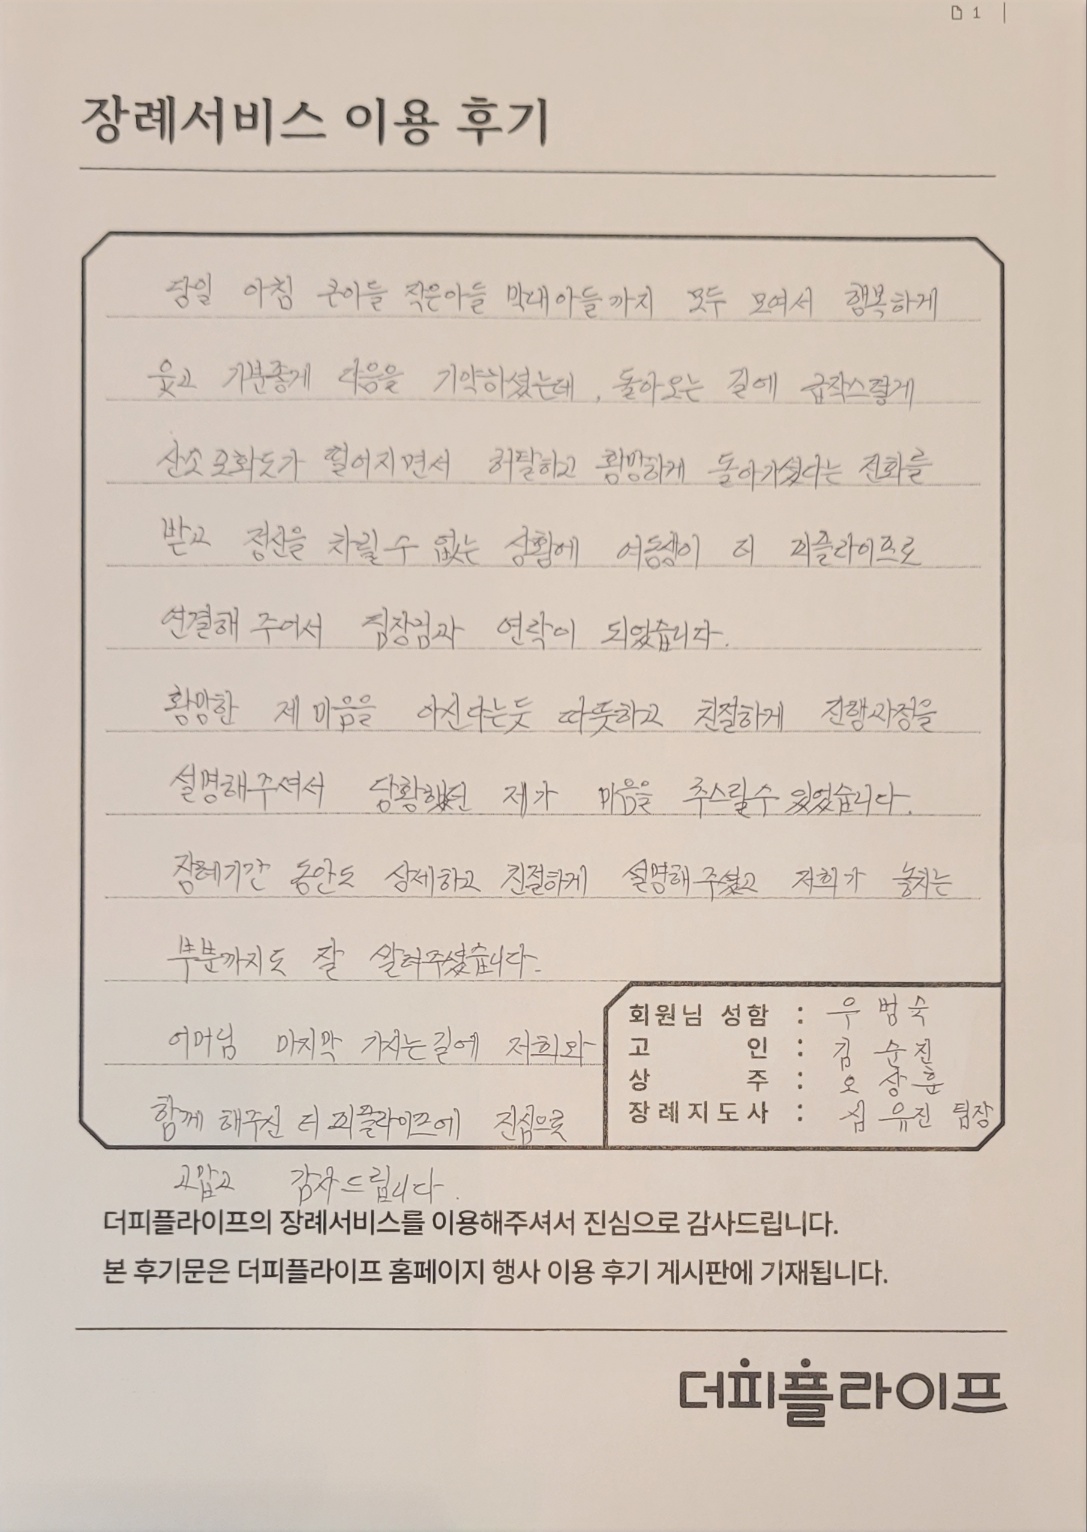 1
장례서비스 이용 후기
당일 아침 큰아들 작은아들 막내아들까지 모두 모여서 행복하게
웃고 기분좋게 다음을 기약하셨는데, 돌아오는 길에 급작스럽게
산소포화도가 떨어지면서 허탈하고 황망하게 돌아가셨다는 전화를
받고 정신을 차릴 수 없는 상황에 여동생이 더 피플라이프로
연결해 주어서 팀장님과 연락이 되었습니다.
황망한 제 마음을 아신다는듯 따뜻하고 친절하게 진행과정을
설명해주셔서 당황했던 제가 마음을 추스릴수 있었습니다.
장례기간 동안도 상세하고 친절하게 설명해주셨고 저희가 놓치는
부분까지도 잘 알려주셨습니다.
어머님 마지막 가시는길에 저희와
함께 해주신 더 피플라이프에 진심으로
고맙고 감사드립니다.
회원님 성함 : 우 범 숙
고 인 : 김 순 진
상 주 : 오 상 훈
장례지도사 : 심 유진 팀장
더피플라이프의 장례서비스를 이용해주셔서 진심으로 감사드립니다.
본 후기문은 더피플라이프 홈페이지 행사 이용 후기 게시판에 기재됩니다.
더피플라이프